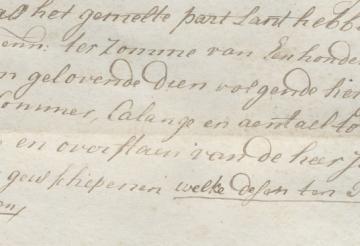 als het gemelte part Lant hebb
penn: ter Zomme van Een honde
n gelovende dien volgende hier
Commer, Calange en aentael to
en overstaen van de heer J
gew schepenen welke desen ten